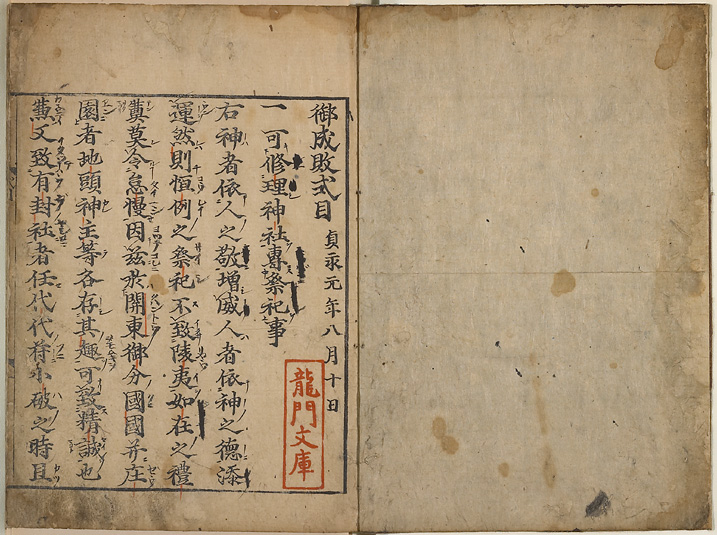 御成敗式目 貞永元年八月十日
一 可修理神社專祭祀事
右神者依人之敬增威人者依神之德添
運然則恒例之祭祀不致陵夷如在之禮
奠莫令怠慢因茲於関東御分國國并庄
園者地頭神主等各存其趣可致精誠也
兼又致有封社者任代代符小破之時且
龍門文庫